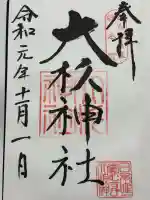 奉拝
大杉神社
令和元年十一月一日